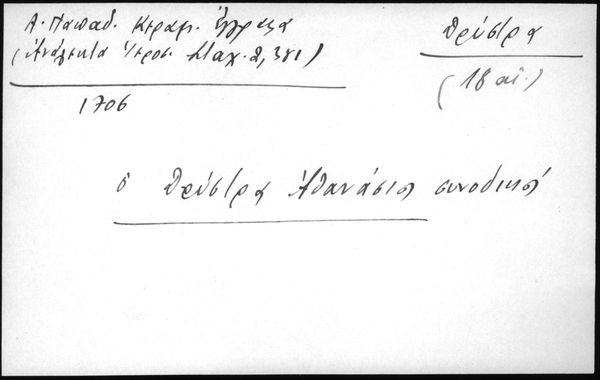 Α. Παπαδ. Κεραμ. Ἔγγραφα
(Ἀνάλεκτα Ἱεροσ. Σταχ. 2, 381)
Δρύστρα
(18 αἰ.)
1706
ὁ Δρύστρα Ἀθανάσιος συνοδικός